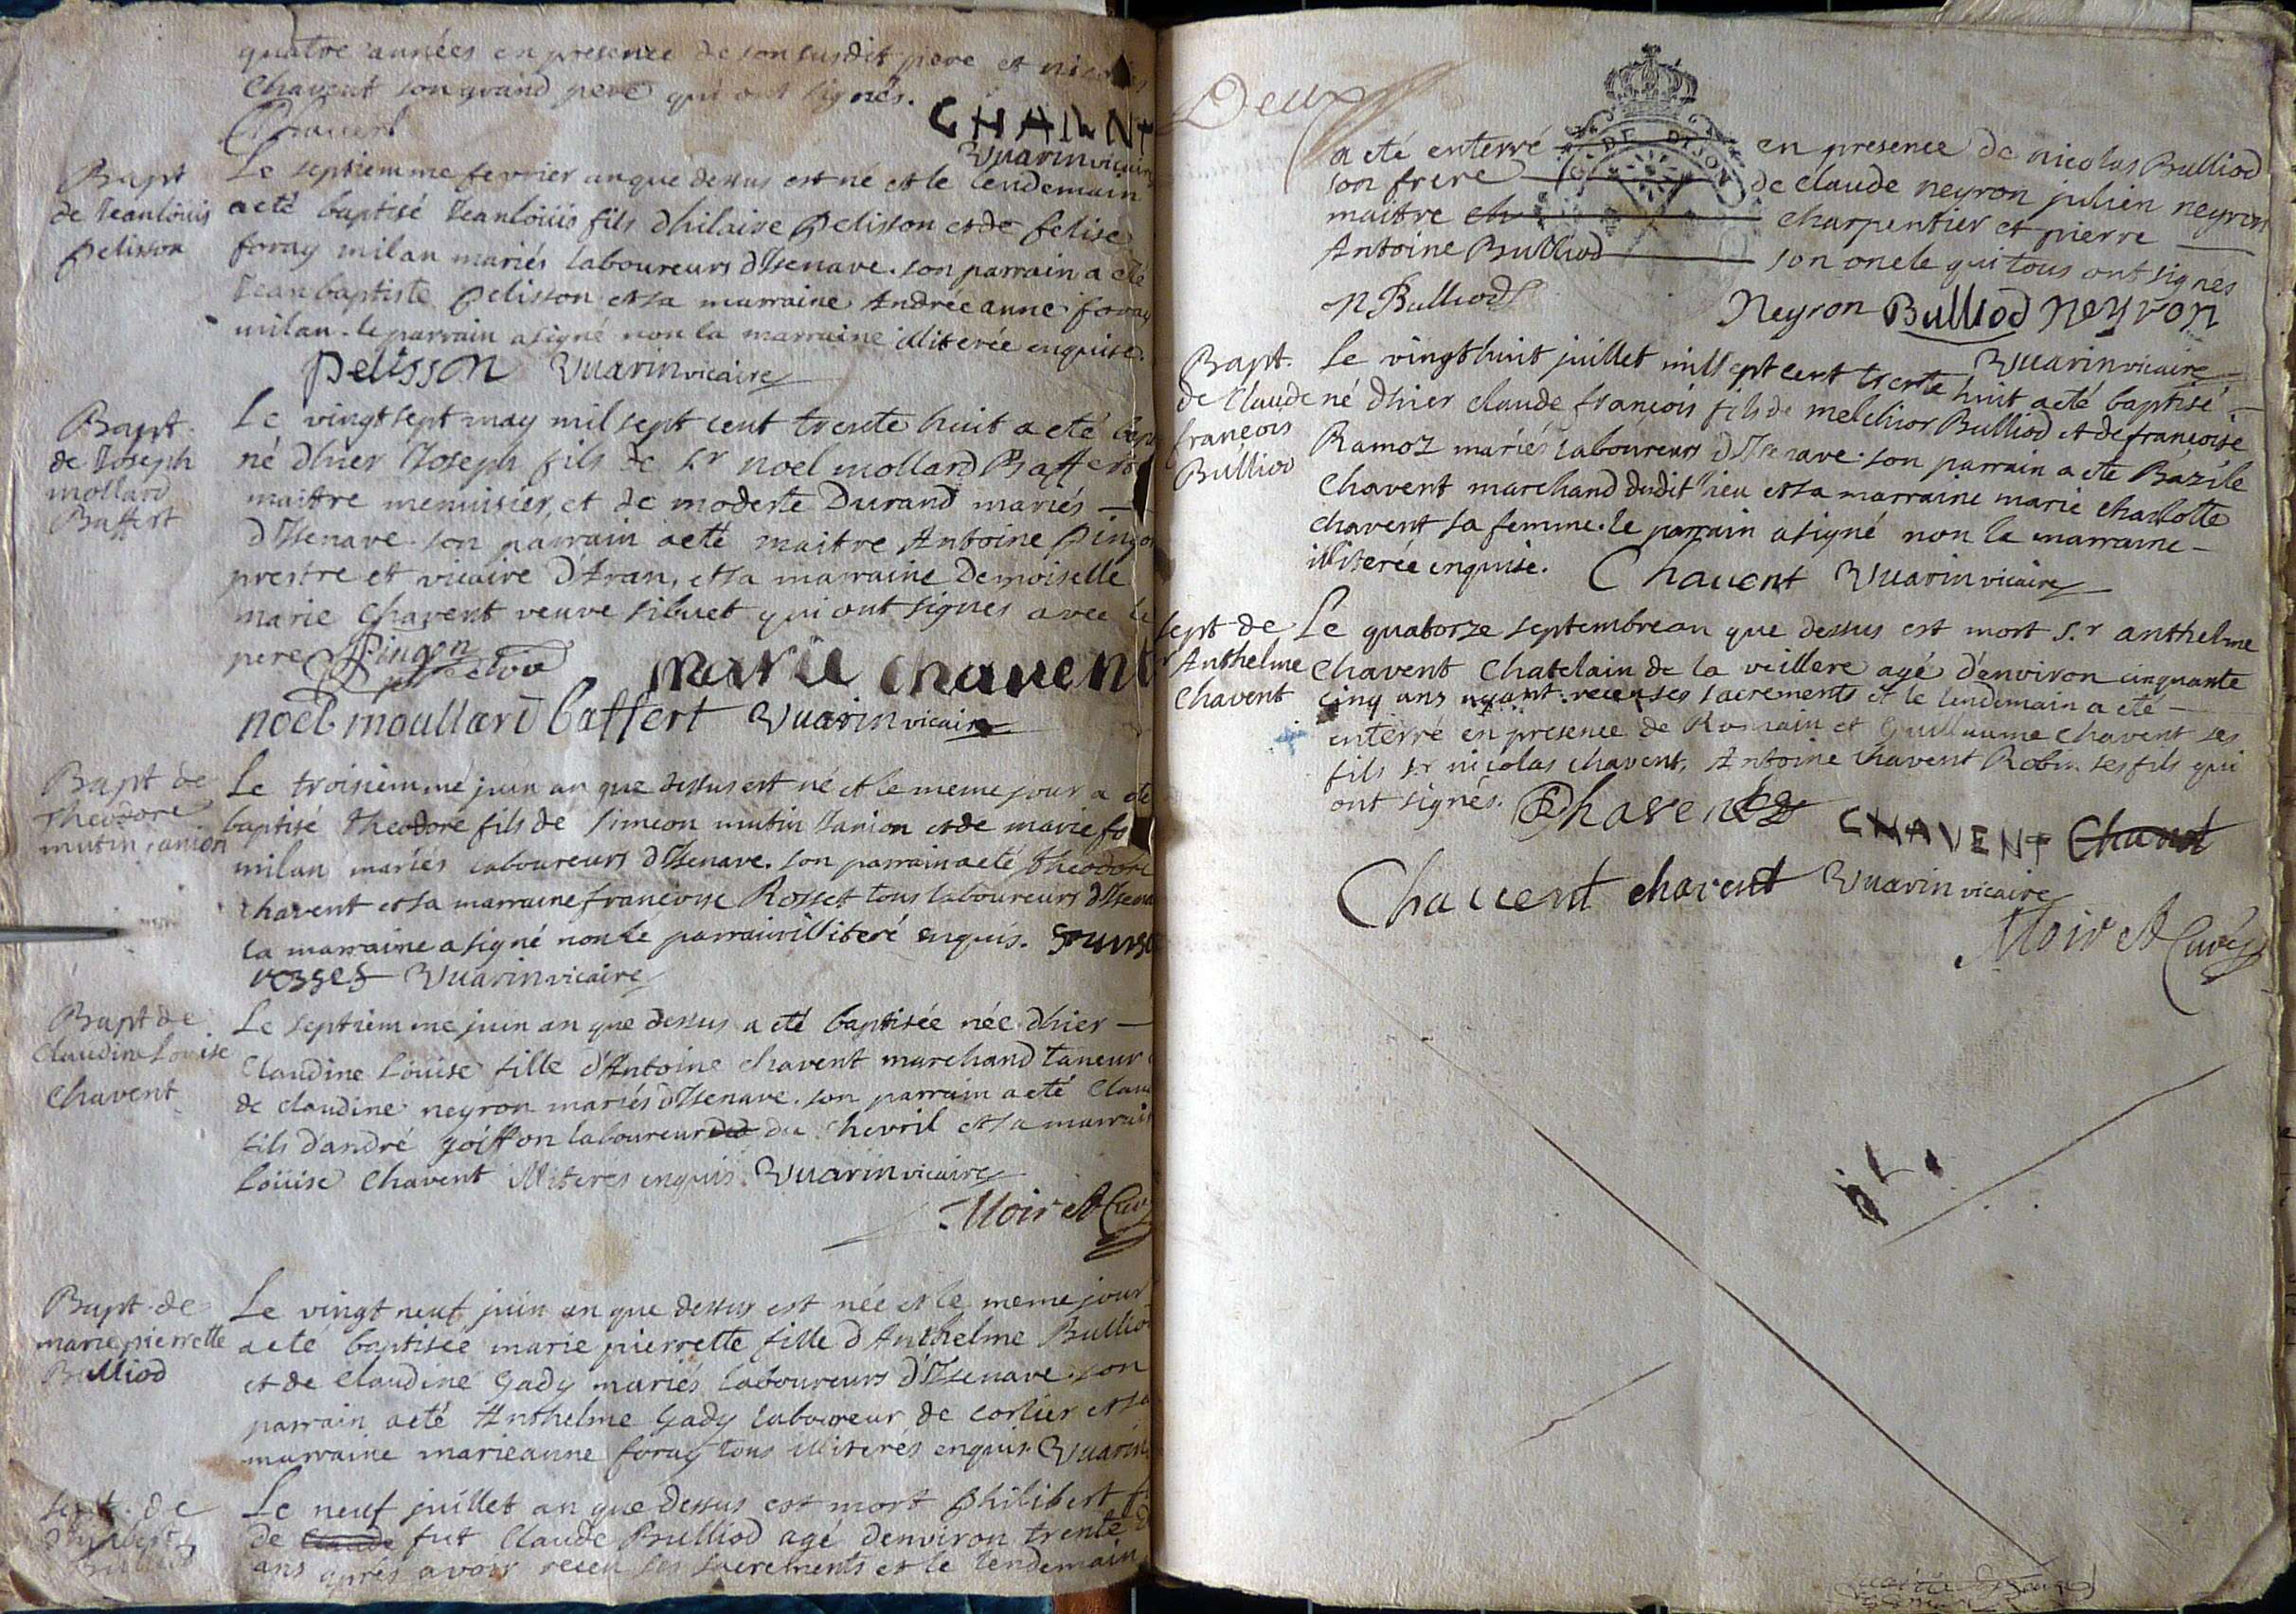 quatre années en presence de son susdit pere et
Chavent son grand pere qui ont signés.
Chavent
CHAVENT
Vuarin vicaire
Bapt
de Jeanloüis
pelisson
Le septiemme fevrier an que dessus est né et le lendemain
a eté baptisé Jeanloüis fils d'hilaire pelisson et de felise
foray milan mariés laboureurs d'Isenave. son parrain a eté
Jeanbaptiste pelisson et sa marraine Andrée anne foray
milan. le parrain a signé non la marraine illiterée enquise.
pelisson Vuarin vicaire
Bapt.
de Joseph
mollard
Baffert
Le vingt sept may mil sept cent trente huit a eté bap
né d'hier Joseph fils de Sr noel mollard Baffert
maitre menuisier, et de modeste Durand mariés —
d'Isenave. son parrain a eté maitre Antoine pingon
prestre et vicaire d'Aran, et sa marraine Demoiselle
marie Chavent veuve sibuet qui ont signes avec le
pere Pingon
marie chavent
noel moullard baffert Vuarin vicaire
Bapt de
Theodore
mutin janion
Le troisiemme juin an que dessus est né et le meme jour a eté
baptisé theodore fils de simeon mutin Janion et de marie fo
milan mariés laboureurs d'Isenave. son parrain a eté theodore
chavent et sa marraine françoise Rosset tous laboureurs d'Isena
la marraine a signé non le parrain illiteré enquis.
rosset Vuarin vicaire
Bapt de
Claudine Louise
Chavent
Le septiemme juin an que dessus a eté baptisée née d'hier —
Claudine Loüise fille d'Antoine chavent marchand taneur
de claudine neyron mariés d'Isenave. son parrain a eté Clau
fils d'andré goiffon laboureur du Chevril et sa marrai
Loüise Chavent illiterés enquis. Vuarin vicaire
Moiret Cur
Bapt. de
marie pierrette
Bulliod
Le vingt neuf juin an que dessus est née et le meme jour
a eté baptisée marie pierrette fille d'Anthelme Bulliod
et de Claudine Gady mariés laboureurs d'Isenave. son
parrain a eté Anthelme Gady laboureur de corlier et sa
marraine marieanne foray tous illiterés enquis. Vuarin
sept. de
philibert
Bulliod
Le neuf juillet an que dessus est mort philibert f
de Claude fut Claude Bulliod agé denviron trente d
ans après avoir receu ses sacrements et le lendemain
Deux
DE DIJON
a eté enterré en presence de nicolas Bulliod
son frere de claude neyron julien neyron
maitre ch charpentier et pierre
Antoine Bulliod son oncle qui tous ont signés
N Bulliod Neyron Bulliod Neyron
Vuarin vicaire
Bapt.
de Claude
françois
Bulliod
Le vingt huit juillet mil sept cent trente huit a eté baptisé
né d'hier claude françois fils de melchior Bulliod et de françoise
Ramoz mariés laboureurs d'Isenave. son parrain a eté Bazile
Chavent marchand dudit lieu et sa marraine marie charlotte
chavent sa femme. le parrain a signé non la marraine —
illiterée enquise. Chavent Vuarin vicaire
sept de
Sr Anthelme
Chavent
Le quatorze septembre an que dessus est mort S.r anthelme
Chavent Chatelain de la veillere agé d'environ cinquante
cinq ans ayant receu ses sacrements et le lendemain a eté —
enterré en presence de Romain et Guillaume Chavent ses
fils Sr nicolas chavent, Antoine chavent Robin ses fils qui
ont signés. Chavent CHAVENT Chavent
Chavent chavent Vuarin vicaire
Moiret Curé